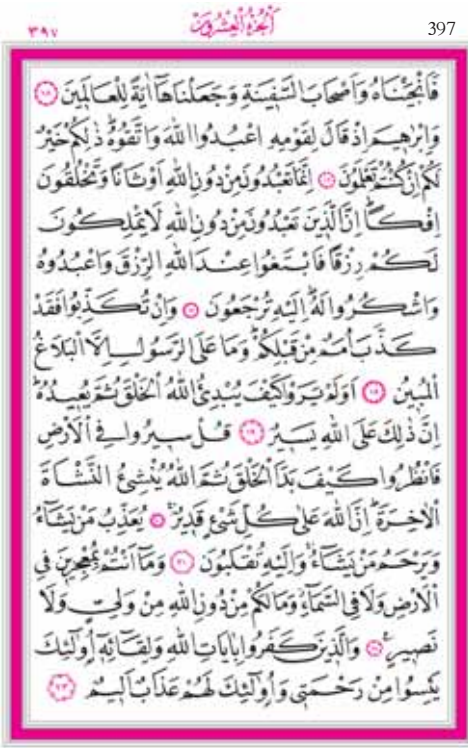 ٣٩٧ اَلْجُزْءُ الْعِشْرُونَ 397
فَاَنْجَيْنَاهُ وَاَصْحَابَ السَّفٖينَةِ وَجَعَلْنَاهَٓا اٰيَةً لِلْعَالَمٖينَ ﴿١٥﴾
وَاِبْرٰهٖيمَ اِذْ قَالَ لِقَوْمِهِ اعْبُدُوا اللّٰهَ وَاتَّقُوهُؕ ذٰلِكُمْ خَيْرٌ
لَكُمْ اِنْ كُنْتُمْ تَعْلَمُونَ ﴿١٦﴾ اِنَّمَا تَعْبُدُونَ مِنْ دُونِ اللّٰهِ اَوْثَانًا وَتَخْلُقُونَ
اِفْكًاؕ اِنَّ الَّذٖينَ تَعْبُدُونَ مِنْ دُونِ اللّٰهِ لَا يَمْلِكُونَ
لَكُمْ رِزْقًا فَابْتَغُوا عِنْدَ اللّٰهِ الرِّزْقَ وَاعْبُدُوهُ
وَاشْكُرُوا لَهُؕ اِلَيْهِ تُرْجَعُونَ ﴿١٧﴾ وَاِنْ تُكَذِّبُوا فَقَدْ
كَذَّبَ اُمَمٌ مِنْ قَبْلِكُمْؕ وَمَا عَلَى الرَّسُولِ اِلَّا الْبَلَاغُ
الْمُبٖينُ ﴿١٨﴾ اَوَلَمْ يَرَوْا كَيْفَ يُبْدِئُ اللّٰهُ الْخَلْقَ ثُمَّ يُعٖيدُهُؕ
اِنَّ ذٰلِكَ عَلَى اللّٰهِ يَسٖيرٌ ﴿١٩﴾ قُلْ سٖيرُوا فِي الْاَرْضِ
فَانْظُرُوا كَيْفَ بَدَاَ الْخَلْقَ ثُمَّ اللّٰهُ يُنْشِئُ النَّشْاَةَ
الْاٰخِرَةَؕ اِنَّ اللّٰهَ عَلٰى كُلِّ شَيْءٍ قَدٖيرٌۚ ﴿٢٠﴾ يُعَذِّبُ مَنْ يَشَٓاءُ
وَيَرْحَمُ مَنْ يَشَٓاءُۚ وَاِلَيْهِ تُقْلَبُونَ ﴿٢١﴾ وَمَٓا اَنْتُمْ بِمُعْجِزٖينَ فِي
الْاَرْضِ وَلَا فِي السَّمَٓاءِؗ وَمَا لَكُمْ مِنْ دُونِ اللّٰهِ مِنْ وَلِيٍّ وَلَا
نَصٖيرٍ ﴿٢٢﴾ وَالَّذٖينَ كَفَرُوا بِاٰيَاتِ اللّٰهِ وَلِقَٓائِهٖٓ اُو۬لٰٓئِكَ
يَئِسُوا مِنْ رَحْمَتٖي وَاُو۬لٰٓئِكَ لَهُمْ عَذَابٌ اَلٖيمٌ ﴿٢٣﴾